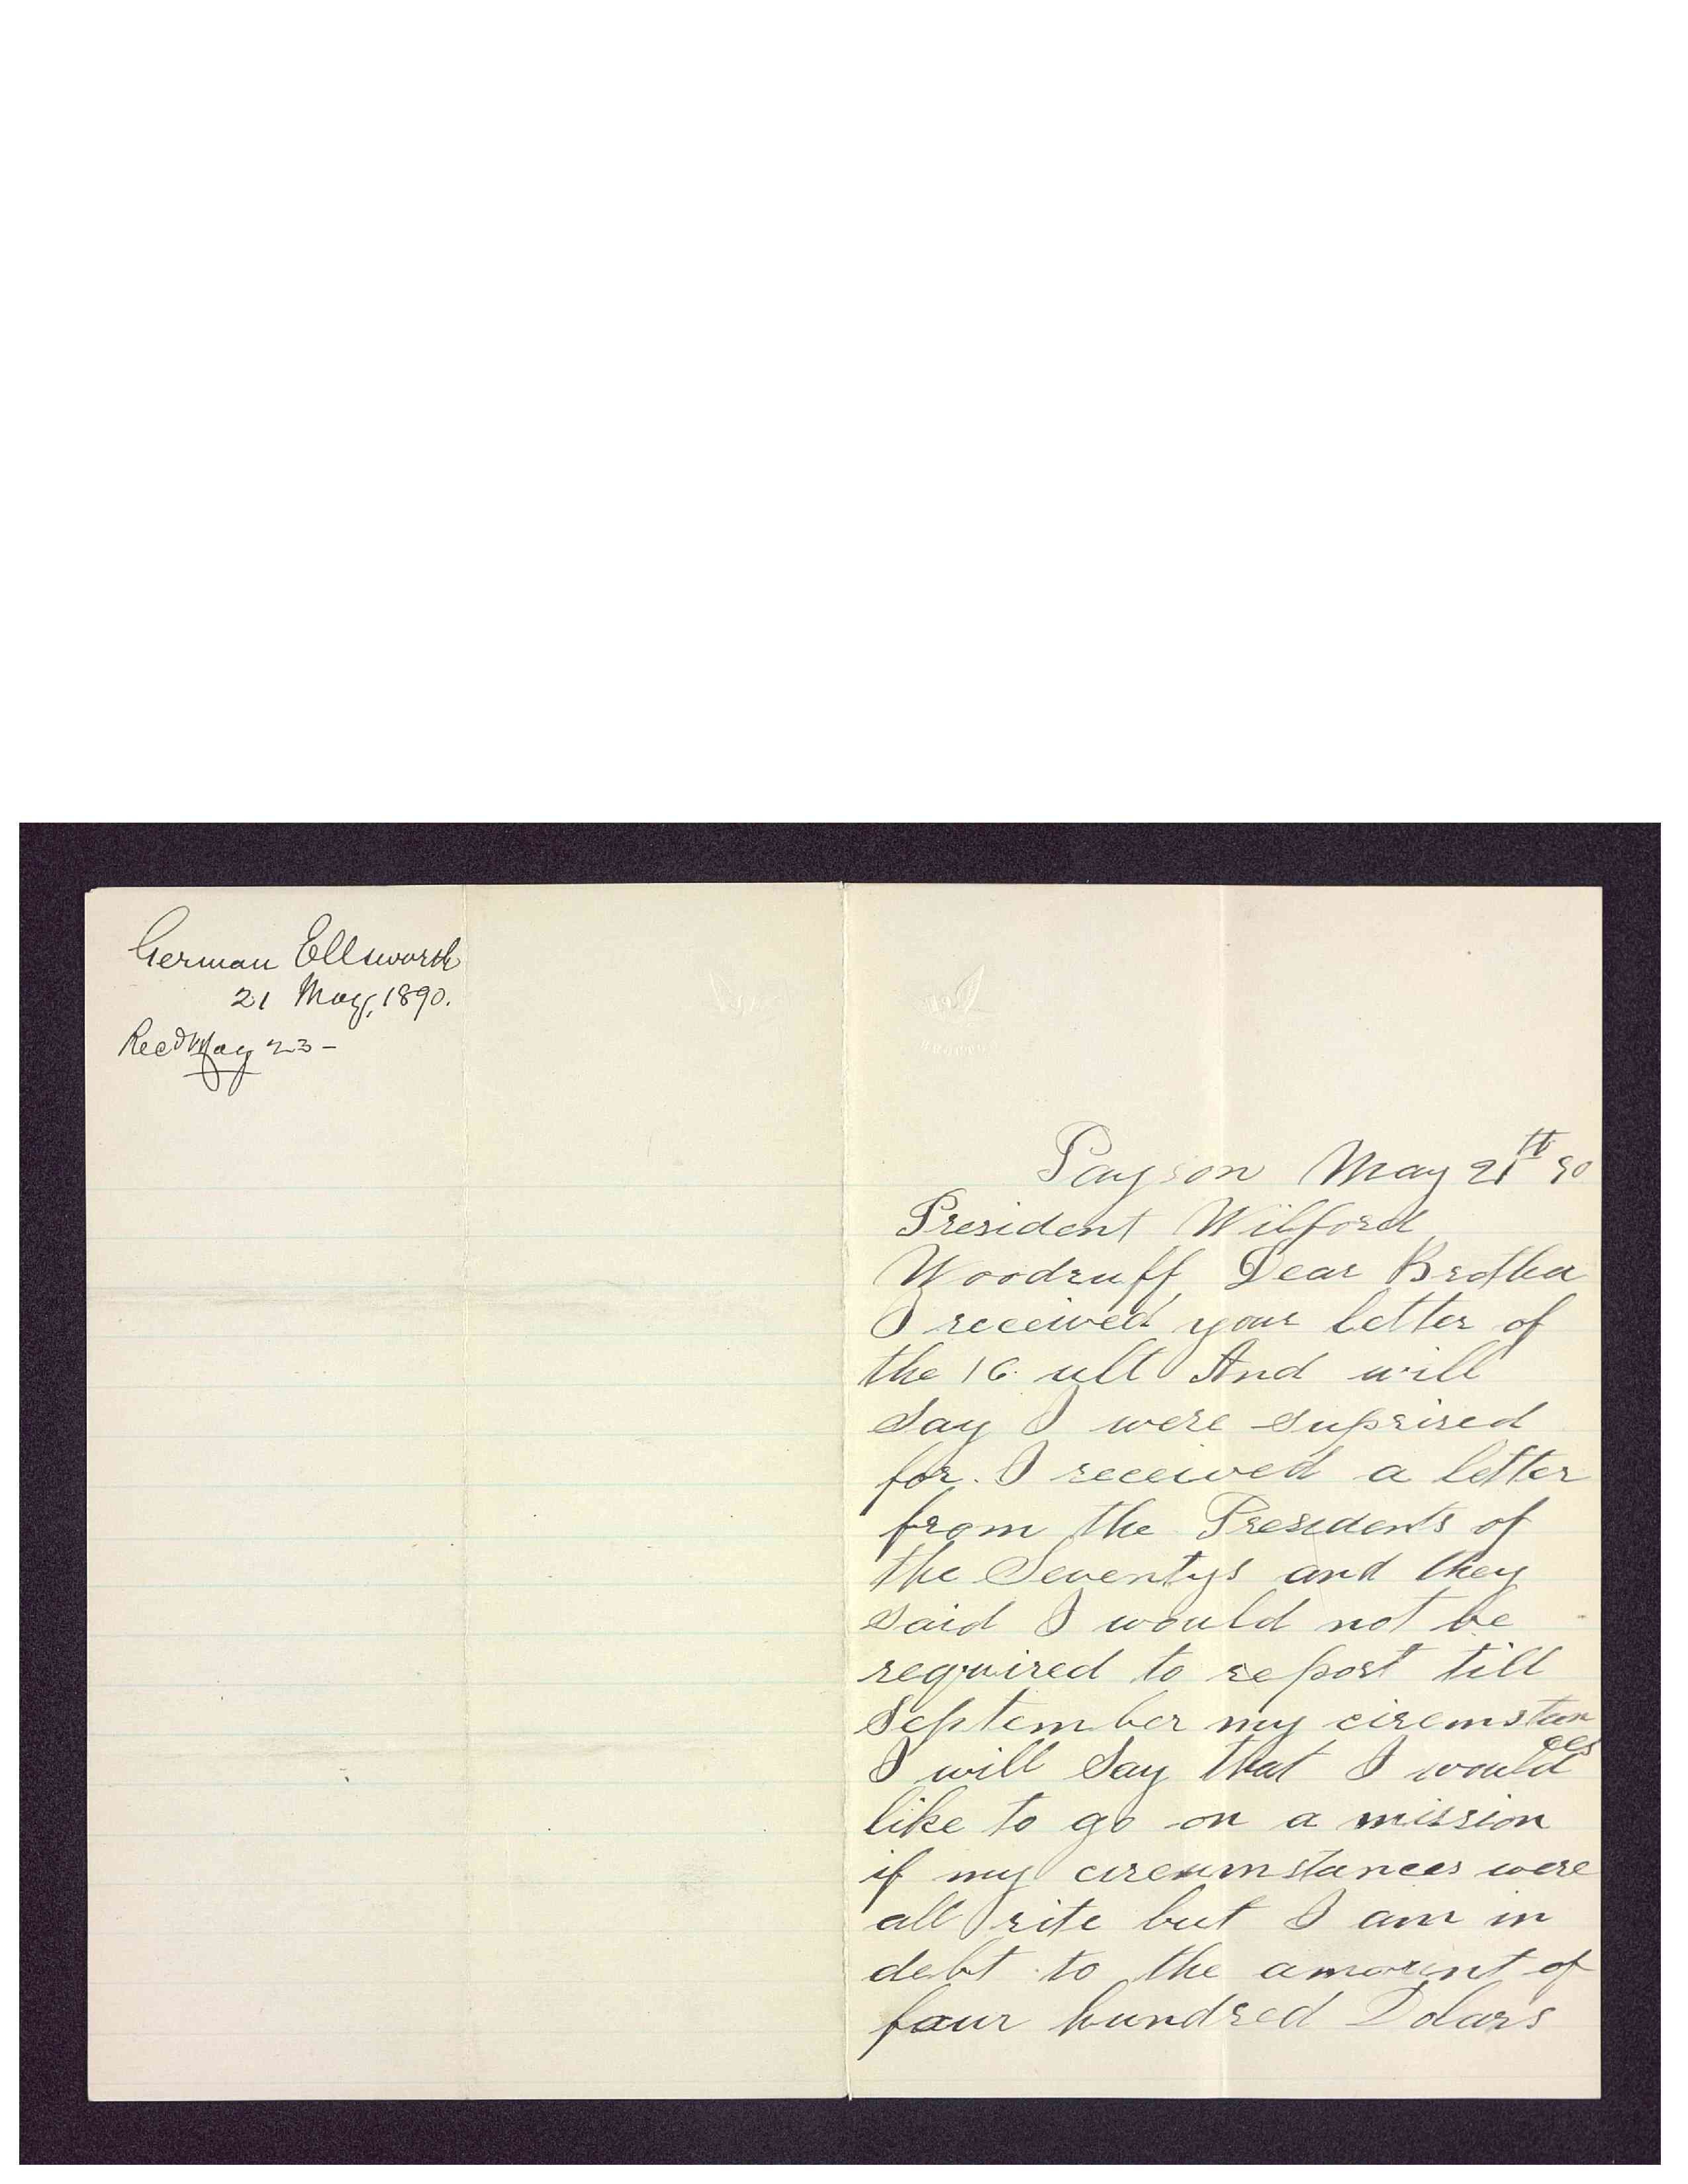 German Ellsworth
21 May, 1890.
Recd May 23-
Payson May 21th 90
President Wilford
Woodruff Dear Brother
I received your letter of
the 16 ult And will
say I were suprised
for. I received a letter
from the Presidents of
the Seventys and they
said I would not be
required to report till
September my ciremstan
ces
I will say that I would
like to go on a mission
if my circumstances were
all rite but I am in
debt to the amount of
four hundred Dolars